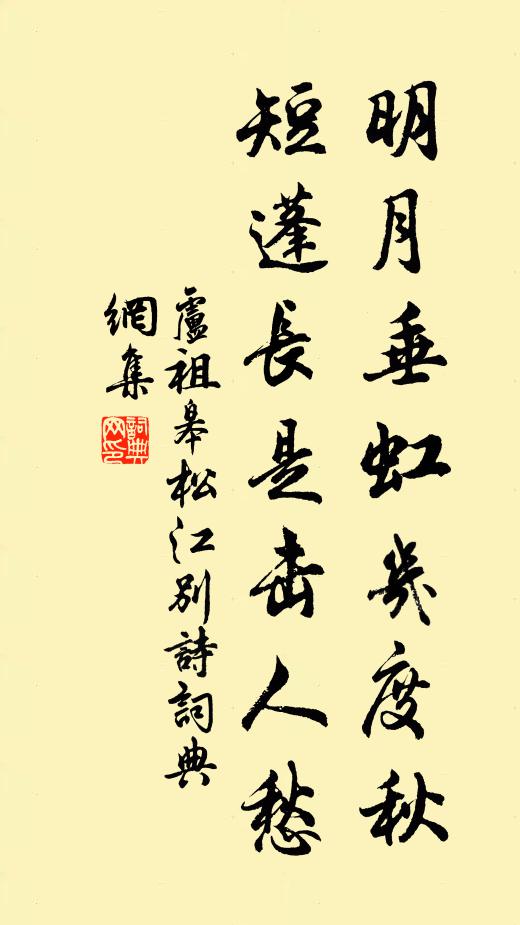 明月垂虹幾度秋
短蓬長是击人愁
盧祖皋松江别詩詞典
網集
詞典
网印